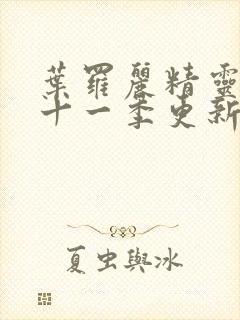 葉羅麗精靈
十一季更新
夏虫與冰